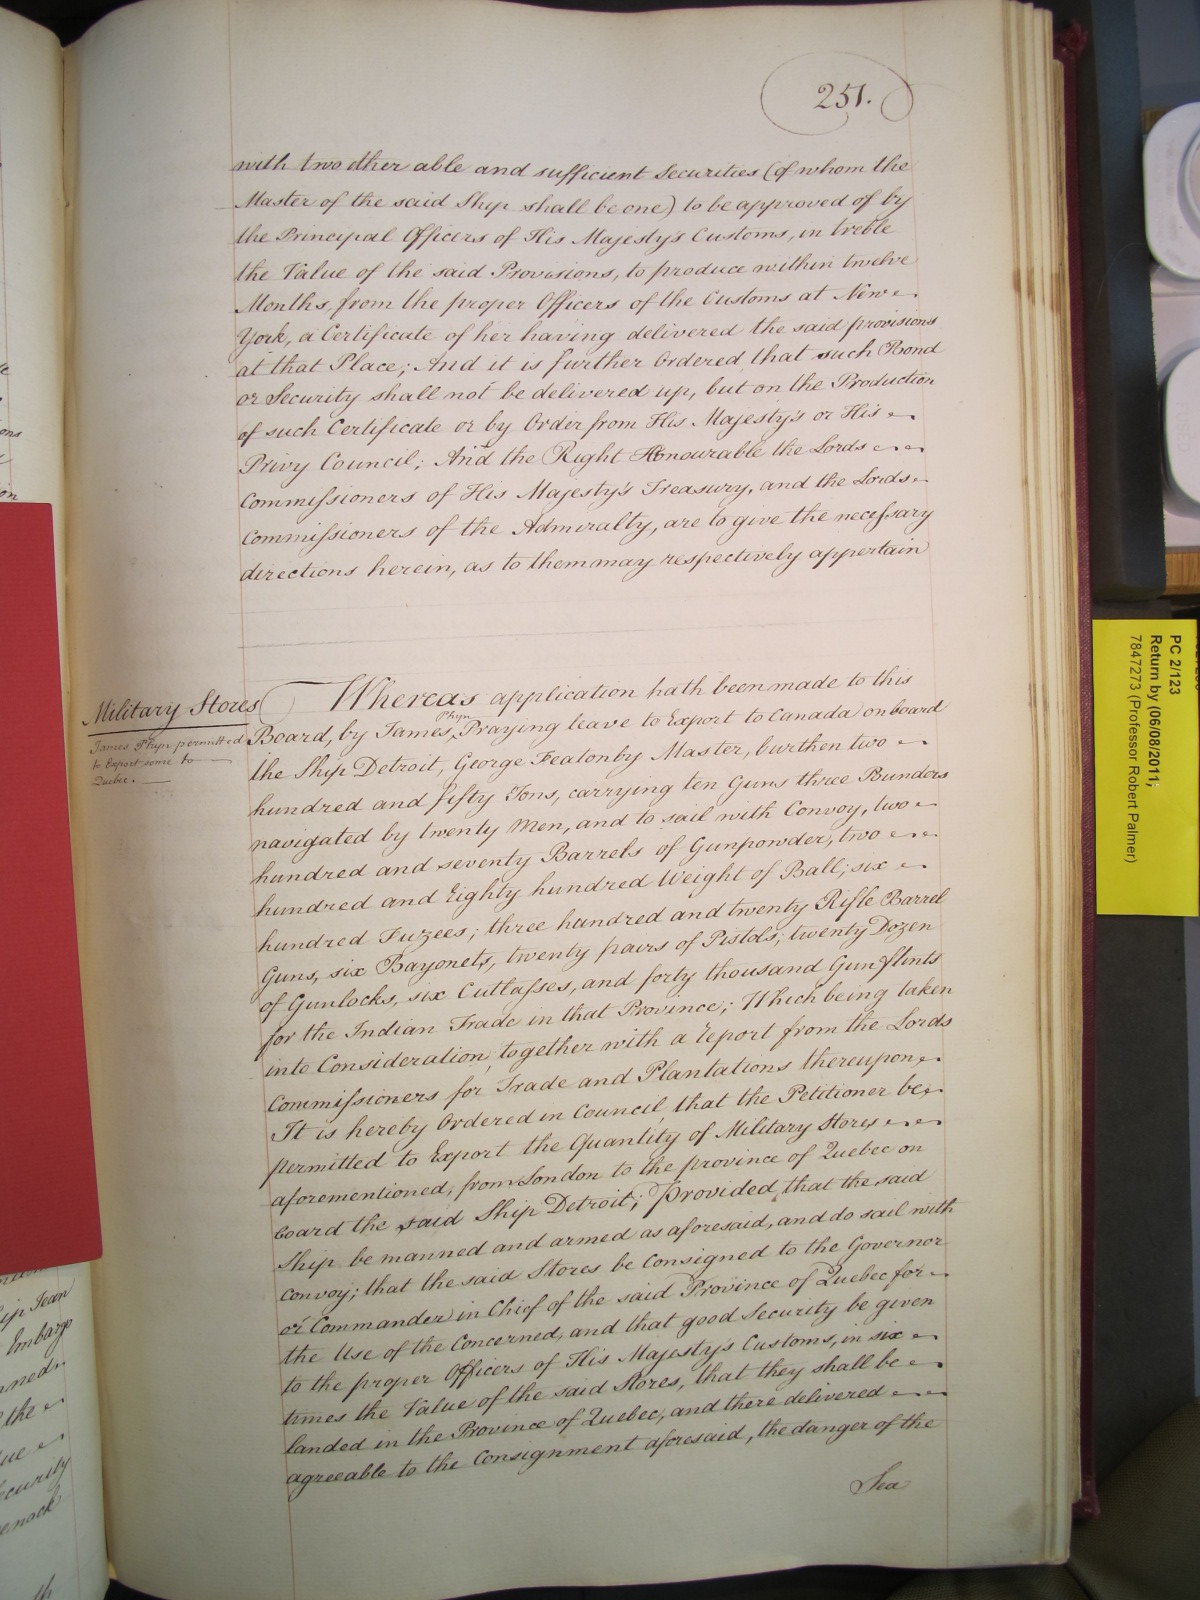 251.
with two other able and sufficient Securities (of whom the
Master of the said Ship shall be one) to be approved of by
the Principal Officers of His Majesty's Customs, in treble
the Value of the said Provisions, to produce within twelve
Months, from the proper Officers of the Customs at New
York, a Certificate of her having delivered the said provisions
at that Place; And it is further Ordered that such Bond
or Security shall not be delivered up, but on the Production
of such Certificate or by Order from His Majesty's or His
Privy Council; And the Right Honourable the Lords
Commissioners of His Majesty's Treasury, and the Lords
Commissioners of the Admiralty, are to give the necessary
directions herein, as to them may respectively appertain
Military Stores
James Phyn permitted
to Export some to
Quebec.
Whereas application hath been made to this
Board, by James Phyn, Praying leave to Export to Canada on board
the Ship Detroit, George Featonby Master, burthen two
hundred and fifty Tons, carrying ten Guns three Pounders
navigated by twenty Men, and to sail with Convoy, two
hundred and seventy Barrels of Gunpowder, two
hundred and Eighty hundred Weight of Ball; six
hundred Fuzees; three hundred and twenty Rifle Barrel
Guns, six Bayonets, twenty pairs of Pistols; twenty Dozen
of Gunlocks, six Cutlasses, and forty thousand Gun flints
for the Indian Trade in that Province; Which being taken
into Consideration, together with a report from the Lords
Commissioners for Trade and Plantations thereupon,
It is hereby Ordered in Council, that the Petitioner be
permitted to Export the Quantity of Military Stores
aforementioned, from London to the province of Quebec on
board the said Ship Detroit; Provided, that the said
Ship be manned and armed as aforesaid, and do sail with
Convoy; that the said Stores be Consigned to the Governor
or Commander in Chief of the said Province of Quebec for
the Use of the Concerned, and that good Security be given
to the proper Officers of His Majesty's Customs, in six
times the Value of the said Stores, that they shall be
landed in the Province of Quebec, and there delivered
agreeable to the Consignment aforesaid, the danger of the
Sea
PC 2/123
Return by (06/08/2011;
7847273 (Professor Robert Palmer)
Jean
Embargo
the